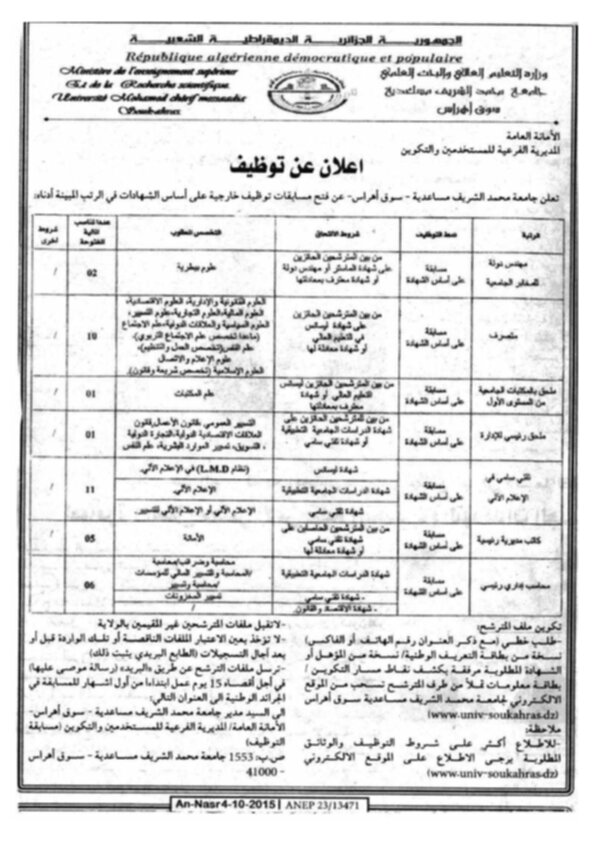 الجمهورية الجزائرية الديمقراطية الشعبية
République algérienne démocratique et populaire
Ministère de l'enseignement supérieur
Et de la Recherche scientifique
Université Mohamed chérif messaadia
Soukahras
وزارة التعليم العالي والبحث العلمي
جامعة محمد الشريف مساعدية
سوق أهراس
الأمانة العامة
المديرية الفرعية للمستخدمين والتكوين
اعلان عن توظيف
تعلن جامعة محمد الشريف مساعدية – سوق أهراس- عن فتح مسابقات توظيف خارجية على أساس الشهادات في الرتب المبينة أدناه:
الرتبة
نمط التوظيف
شروط الالتحاق
التخصص المطلوب
عدد المناصب المالية المفتوحة
شروط أخرى
مهندس دولة للمخابر الجامعية
مسابقة على أساس الشهادة
من بين المترشحين الحائزين على شهادة الماستر أو مهندس دولة أو شهادة معترف بمعادلتها
علوم بيطرية
02
/
متصرف
مسابقة على أساس الشهادة
من بين المترشحين الحائزين على شهادة ليسانس في التعليم العالي أو شهادة معادلة لها
العلوم القانونية والإدارية، العلوم الاقتصادية،
العلوم المالية،العلوم التجارية،علوم التسيير،
العلوم السياسية والعلاقات الدولية،علم الاجتماع
(ماعدا تخصص علم الاجتماع التربوي)،
علم النفس(تخصص العمل والتنظيم)،
علوم الإعلام والاتصال
العلوم الإسلامية (تخصص شريعة وقانون).
10
/
ملحق بالمكتبات الجامعية من المستوى الأول
مسابقة على أساس الشهادة
من بين المترشحين الحائزين ليسانس التعليم العالي أو شهادة معترف بمعادلتها
علم المكتبات
01
/
ملحق رئيسي للإدارة
مسابقة على أساس الشهادة
من بين المترشحين الحائزين على شهادة الدراسات الجامعية التطبيقية أو شهادة تقني سامي
التسيير العمومي ،قانون الأعمال،قانون
العلاقات الاقتصادية الدولية،التجارة الدولية
، التسويق، تسيير الموارد البشرية، علم النفس
01
/
تقني سامي في الإعلام الآلي
مسابقة على أساس الشهادة
شهادة ليسانس
(نظام L.M.D) في الإعلام الآلي
شهادة الدراسات الجامعية التطبيقية
الإعلام الآلي
شهادة تقني سامي
الإعلام الآلي أو الإعلام الآلي للتسيير
11
/
كاتب مديرية رئيسية
مسابقة على أساس الشهادة
من بين المترشحين الحاصلين على شهادة تقني سامي أو شهادة معادلة لها
الأمانة
05
/
محاسب إداري رئيسي
مسابقة على أساس الشهادة
شهادة الدراسات الجامعية التطبيقية
محاسبة وضرائب/محاسبة
/المحاسبة والتسيير المالي للمؤسسات
/محاسبة وتسيير
- شهادة تقني سامي
تسيير المخزونات
- شهادة الاقتصاد والقانون
/
06
/
تكوين ملف المترشح:
-طلب خطي (مع ذكر العنوان رقم الهاتف أو الفاكس)
نسخة من بطاقة التعريف الوطنية/ نسخة من المؤهل أو
الشهادة المطلوبة مرفقة بكشف نقاط مسار التكوين /
بطاقة معلومات تملأ من طرف المترشح تسحب من الموقع
الالكتروني لجامعة محمد الشريف مساعدية سوق أهراس
(www.univ-soukahras.dz)
ملاحظة:
-للإطلاع أكثر على شروط التوظيف والوثائق
المطلوبة يرجى الاطلاع على الموقع الالكتروني
(www.univ-soukahras.dz)
-لاتقبل ملفات المترشحين غير المقيمين بالولاية
-لا تؤخذ بعين الاعتبار الملفات الناقصة أو تلك الواردة قبل أو
بعد آجال التسجيلات (الطابع البريدي يثبت ذلك)
-ترسل ملفات الترشح عن طريق «البريد» (رسالة موصى عليها)
في أجل أقصاه 15 يوم عمل ابتداءا من أول اشهار للمسابقة في
الجرائد الوطنية الى العنوان التالي:
الى السيد مدير جامعة محمد الشريف مساعدية - سوق أهراس-
الأمانة العامة/ المديرية الفرعية للمستخدمين والتكوين (مسابقة
التوظيف)
ص.ب: 1553 جامعة محمد الشريف مساعدية - سوق أهراس
41000 -
An-Nasr 4-10-2015 | ANEP 23/13471